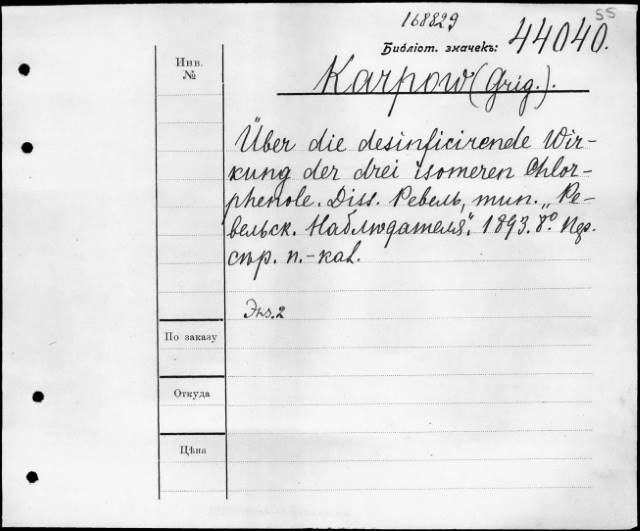 55
168829
Библіот. значекъ: 44040.
Инв.
№
Karpow (Grig.).
Über die desinficirende Wir-
kung der drei isomeren Chlor-
phenole. Diss. Ревель, тип. „Ре-
вельск. Наблюдателя". 1893. 8°. Пер.
стр. n.-kal.
Экз. 2
По заказу
Откуда
Цѣна